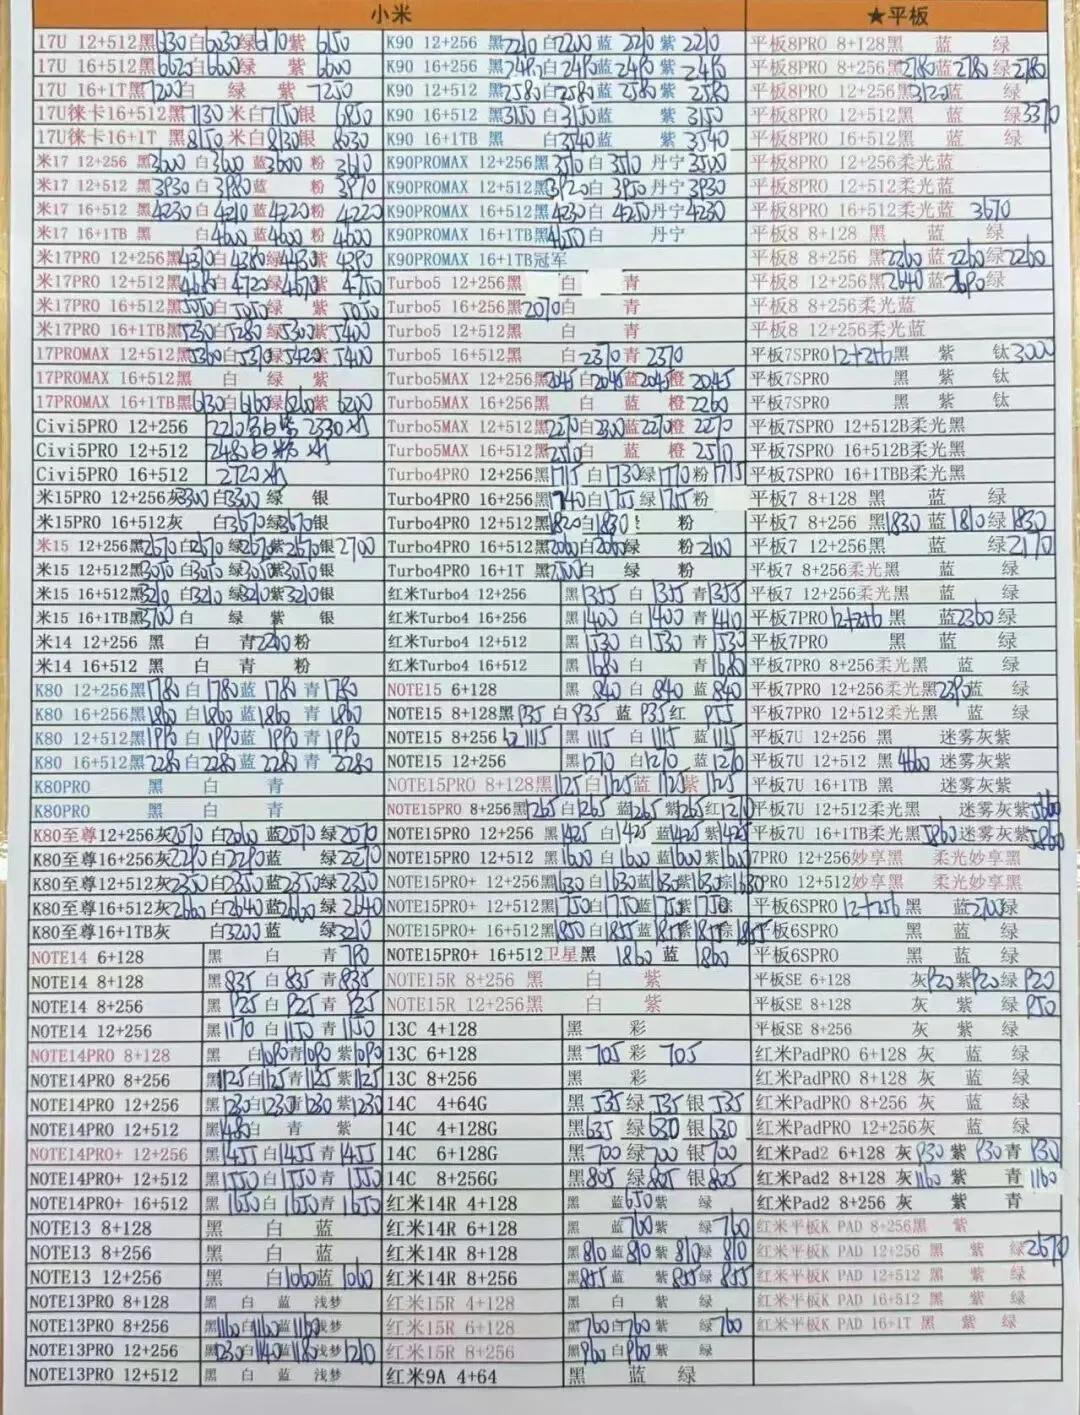 小米
★平板
17U 12+512黑6130白6030绿6170紫 6150
17U 16+512黑6620白6600绿 紫 6600
17U 16+1T黑7200白 绿 紫 7250
17U徕卡16+512黑7130 米白7150银 6850
17U徕卡16+1T 黑8150 米白8130银 8030
米17 12+256 黑3600 白3600 蓝3600 粉 3610
米17 12+512 黑3930 白3980蓝 粉 3970
米17 16+512 黑4230 白4210 蓝4220粉 4220
米17 16+1TB 黑 白4600 蓝4600 粉 4600
米17PRO 12+256黑4370白4380绿4430紫 4390
米17PRO 12+512黑4680白4720绿4670紫 4750
米17PRO 16+512黑5050白5050绿 紫 5050
米17PRO 16+1TB黑5230白5280绿5300紫5400
17PROMAX 12+512黑5360白5370绿5420紫5400
17PROMAX 16+512黑 白 绿 紫
17PROMAX 16+1TB黑6130白6160绿6200紫6200
Civi5PRO 12+256 2210 白 紫 2330
Civi5PRO 12+512 2480白 粉
Civi5PRO 16+512 2720
米15PRO 12+256灰3300白3300绿 银
米15PRO 16+512灰 白3670绿3670银
米15 12+256黑2670白2670 绿2670紫2670银2700
米15 12+512黑3050 白3050 绿3050紫3050银
米15 16+512黑3210 白3210 绿3210紫3210银
米15 16+1TB黑3700白 绿 紫 银
米14 12+256 黑 白 青2200粉
米14 16+512 黑 白 青 粉
K80 12+256黑1780 白 1780蓝 1780 青1780
K80 16+256黑1860 白1860蓝1860 青 1860
K80 12+512黑1990 白1990蓝1990 青1990
K80 16+512黑2280 白2280 蓝2280 青 2280
K80PRO 黑 白 青
K80PRO 黑 白 青
K80至尊12+256灰2070 白2060 蓝2070 绿2070
K80至尊16+256灰2290 白2290蓝 绿2270
K80至尊12+512灰2350 白2350蓝2350绿2350
K80至尊16+512灰2660 白2640蓝2660 绿2640
K80至尊16+1TB灰 白3200蓝 绿3210
NOTE14 6+128 黑 白 青 790
NOTE14 8+128 黑835 白 835 青835
NOTE14 8+256 黑 925 白 925 青 925
NOTE14 12+256 黑1170 白 1150 青 1150
NOTE14PRO 8+128 黑 白1090青1090 紫1090
NOTE14PRO 8+256 黑1125白1125青1125紫1125
NOTE14PRO 12+256 黑1230白1230青1230 紫1230
NOTE14PRO 12+512 黑1480白 青 紫
NOTE14PRO+ 12+256 黑1455白1455青1455
NOTE14PRO+ 12+512 黑1550白1550 青1550
NOTE14PRO+ 16+512 黑1650 白1650青1650
NOTE13 8+128 黑 白 蓝
NOTE13 8+256 黑 白 蓝
NOTE13 12+256 黑 白1060蓝 1060
NOTE13PRO 8+128 黑 白 蓝 浅梦
NOTE13PRO 8+256 黑1160白1160蓝1160浅梦
NOTE13PRO 12+256 黑1230白1140蓝1180浅梦1210
NOTE13PRO 12+512 黑 白 蓝 浅梦
K90 12+256 黑2210 白2200 蓝 2210 紫 2210
K90 16+256 黑2490白2490蓝 2490 紫 2490
K90 12+512 黑2580白2580蓝 2580 紫 2580
K90 16+512 黑3150白 3150蓝 紫 3150
K90 16+1TB 黑 白3540蓝 紫 3540
K90PROMAX 12+256黑3510白 3510 丹宁3500
K90PROMAX 12+512黑3920白 3950 丹宁3930
K90PROMAX 16+512黑4230白 4250丹宁4230
K90PROMAX 16+1TB黑4650白 丹宁
K90PROMAX 16+1TB冠军
Turbo5 12+256黑 白 青
Turbo5 16+256黑2070白 青
Turbo5 12+512黑 白 青
Turbo5 16+512黑 白2370青 2370
Turbo5MAX 12+256黑2045白2045蓝2045橙 2045
Turbo5MAX 16+256黑 白 蓝 橙 2260
Turbo5MAX 12+512黑2270白2300蓝2270橙 2270
Turbo5MAX 16+512黑2510白 蓝 橙 2510
Turbo4PRO 12+256黑1715 白1730绿1710粉 1715
Turbo4PRO 16+256黑1740白1755 绿1755粉
Turbo4PRO 12+512黑1820白1830 粉
Turbo4PRO 16+512黑2060白2060绿 粉2100
Turbo4PRO 16+1T 黑2500白 绿 粉
红米Turbo4 12+256 黑1355 白 1355 青1355
红米Turbo4 16+256 黑1400 白 1400 青1410
红米Turbo4 12+512 黑1530 白 1530 青1530
红米Turbo4 16+512 黑1680 白 青1680
NOTE15 6+128 黑 840 白 840 蓝840
NOTE15 8+128黑 935 白935 蓝 935红 955
NOTE15 8+256 红1115 黑 1115 白 1115 蓝1115
NOTE15 12+256 黑1270 白1210 蓝 1210
NOTE15PRO 8+128黑1125白1125蓝1125紫1125
NOTE15PRO 8+256黑1265白1265 蓝1265 紫1265红1270
NOTE15PRO 12+256 黑1425 白1425 蓝1425 紫1425
NOTE15PRO 12+512 黑1600 白1600 蓝1600紫1600
NOTE15PRO+ 12+256黑1630白1630蓝1630紫1630棕1630
NOTE15PRO+ 12+512黑1750白1750蓝1750紫1750棕
NOTE15PRO+ 16+512黑1850 白1855蓝1855紫1855棕1855
NOTE15PRO+ 16+512卫星黑 1860 蓝 1860
NOTE15R 8+256 黑 白 紫
NOTE15R 12+256黑 白 紫
13C 4+128 黑 彩
13C 6+128 黑 705 彩 705
13C 8+256 黑 彩
14C 4+64G 黑 535 绿 535 银 535
14C 4+128G 黑635 绿630 银 630
14C 6+128G 黑700 绿700 银700
14C 8+256G 黑805 绿805 银805
红米14R 4+128 黑 蓝650紫 绿
红米14R 6+128 黑 蓝760紫 绿760
红米14R 8+128 黑810 蓝810 紫810绿 810
红米14R 8+256 黑855蓝 紫855绿 855
红米15R 4+128 黑 白 紫 绿
红米15R 6+128 黑760白760 紫 绿760
红米15R 8+256 黑960 白960紫 绿
红米9A 4+64 黑 蓝 绿
平板8PRO 8+128黑 蓝 绿
平板8PRO 8+256黑2780蓝2780 绿2780
平板8PRO 12+256黑3120蓝 绿
平板8PRO 8+512黑 蓝 绿3370
平板8PRO 16+512黑 蓝 绿
平板8PRO 12+256柔光蓝
平板8PRO 12+512柔光蓝
平板8PRO 16+512柔光蓝 3670
平板8 8+128 黑 蓝 绿
平板8 8+256 黑2260 蓝2260绿2260
平板8 12+256 黑2640 蓝2690绿
平板8 8+256柔光蓝
平板8 12+256柔光蓝
平板7SPRO12+256黑 紫 钛3000
平板7SPRO 黑 紫 钛
平板7SPRO 黑 紫 钛
平板7SPRO 12+512B柔光黑
平板7SPRO 16+512B柔光黑
平板7SPRO 16+1TBB柔光黑
平板7 8+128 黑 蓝 绿
平板7 8+256 黑1830 蓝 1810绿 1830
平板7 12+256黑 蓝 绿2170
平板7 8+256柔光黑 蓝 绿
平板7 12+256柔光黑 蓝 绿
平板7PRO12+256黑 蓝2360绿
平板7PRO 黑 蓝 绿
平板7PRO 8+256柔光黑 蓝 绿
平板7PRO 12+256柔光黑2390蓝 绿
平板7PRO 12+512柔光黑 蓝 绿
平板7U 12+256 黑 迷雾灰紫
平板7U 12+512 黑4600 迷雾灰紫
平板7U 16+1TB 黑 迷雾灰紫
平板7U 12+512柔光黑 迷雾灰紫5060
平板7U 16+1TB柔光黑5860迷雾灰紫5860
7PRO 12+256妙享黑 柔光妙享黑
PRO 12+512妙享黑 柔光妙享黑
平板6SPRO 12+256黑 蓝2700绿
平板6SPRO 黑 蓝 绿
平板6SPRO 黑 蓝 绿
平板SE 6+128 灰920紫920绿 920
平板SE 8+128 灰 紫 绿 950
平板SE 8+256 灰 紫 绿
红米PadPRO 6+128 灰 蓝 绿
红米PadPRO 8+128 灰 蓝 绿
红米PadPRO 8+256 灰 蓝 绿
红米PadPRO 12+256灰 蓝 绿
红米Pad2 6+128 灰 930 紫 930 青 930
红米Pad2 8+128 灰1160 紫 青 1160
红米Pad2 8+256 灰 紫 青
红米平板K PAD 8+256黑 紫
红米平板K PAD 12+256 黑 紫 绿2670
红米平板K PAD 12+512 黑 紫 绿
红米平板K PAD 16+512 黑 紫 绿
红米平板K PAD 16+1T 黑 紫 绿